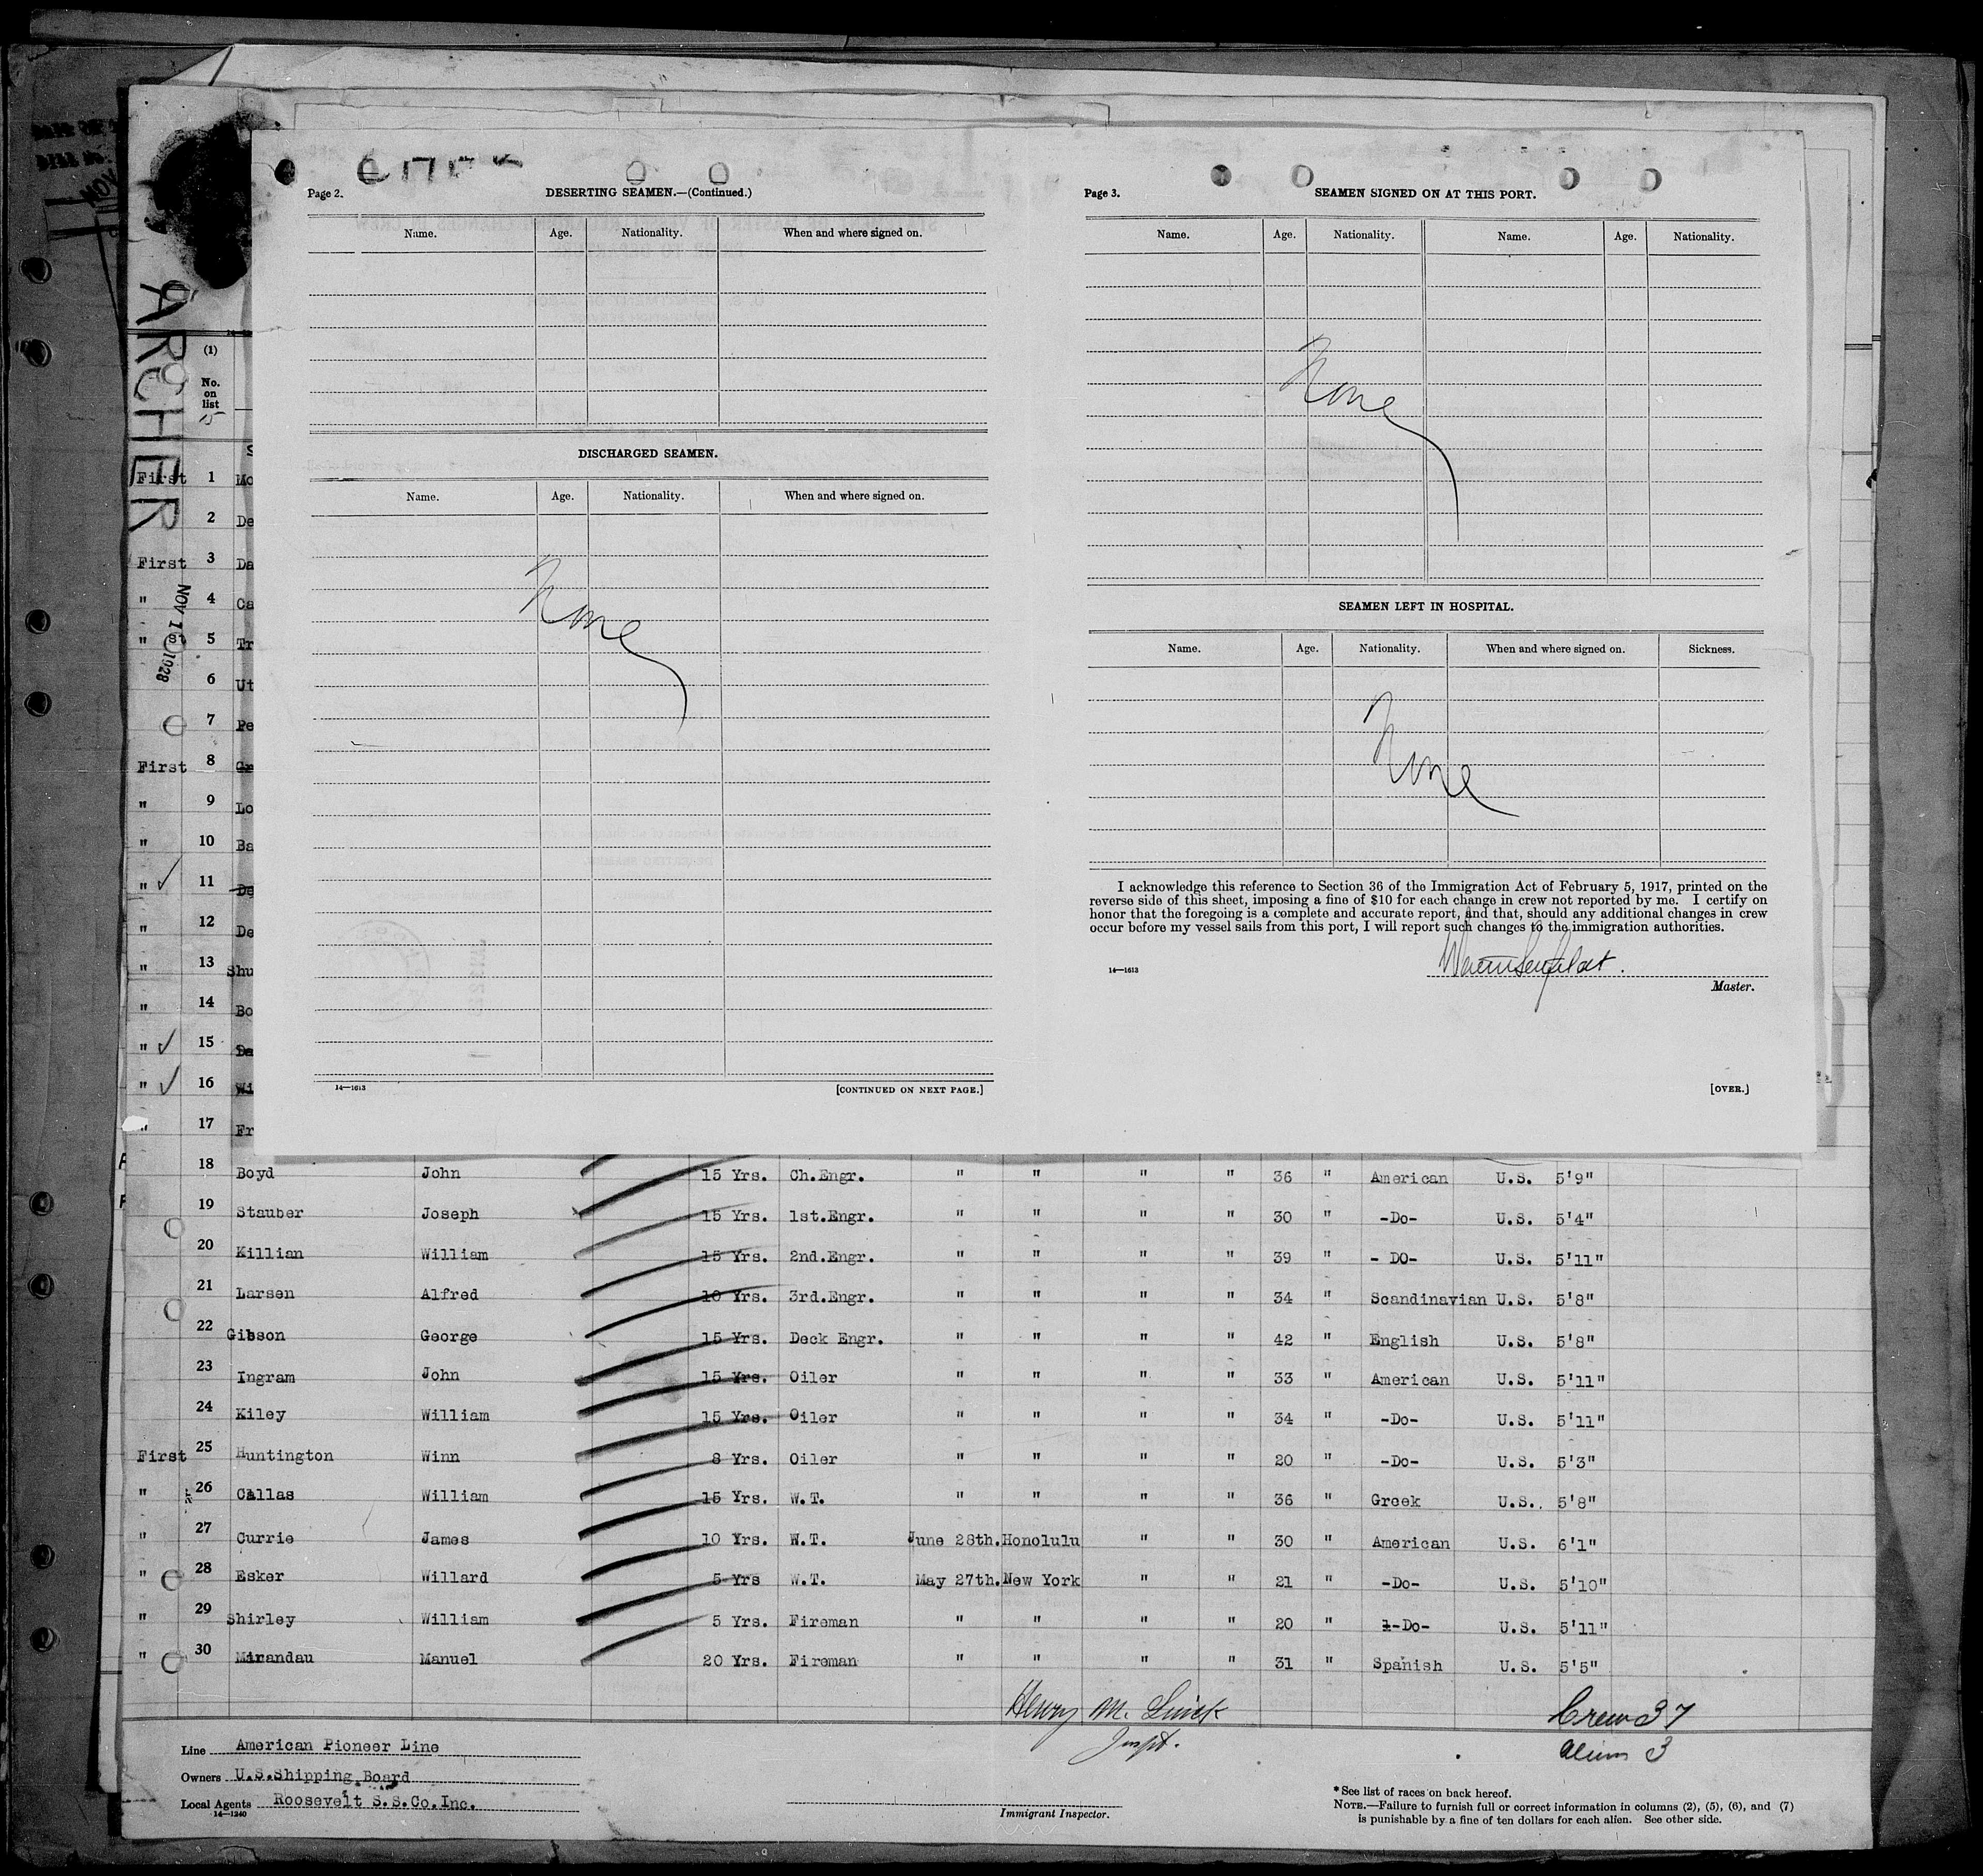 ARCHER
NOV 1 1928
Page 2.
DESERTING SEAMEN.—(Continued.)
Name. Age. Nationality. When and where signed on.
DISCHARGED SEAMEN.
Name. Age. Nationality. When and where signed on.
None
14—1613 [CONTINUED ON NEXT PAGE.]
Page 3.
SEAMEN SIGNED ON AT THIS PORT.
Name. Age. Nationality. Name. Age. Nationality.
None
SEAMEN LEFT IN HOSPITAL.
Name. Age. Nationality. When and where signed on. Sickness.
None
I acknowledge this reference to Section 36 of the Immigration Act of February 5, 1917, printed on the
reverse side of this sheet, imposing a fine of $10 for each change in crew not reported by me. I certify on
honor that the foregoing is a complete and accurate report, and that, should any additional changes in crew
occur before my vessel sails from this port, I will report such changes to the immigration authorities.
14—1613
Master.
[OVER.]
(1)
No.
on
list
First 1 Mc
2 De
First 3 Da
" 4 Ca
" 5 Tr
6 Ut
7 Pe
First 8 Gr
" 9 Lo
" 10 Ba
" 11 De
" 12 De
" 13 Shu
" 14 Bo
" 15 De
" 16 Wi
" 17 Fr
18 Boyd John 15 Yrs. Ch.Engr. " " " " 36 " American U.S. 5'9"
19 Stauber Joseph 15 Yrs. 1st.Engr. " " " " 30 " -Do- U.S. 5'4"
20 Killian William 15 Yrs. 2nd.Engr. " " " " 39 " - DO- U.S. 5'11"
21 Larsen Alfred 10 Yrs. 3rd.Engr. " " " " 34 " Scandinavian U.S. 5'8"
22 Gibson George 15 Yrs. Deck Engr. " " " " 42 " English U.S. 5'8"
23 Ingram John 15 Yrs. Oiler " " " " 33 " American U.S. 5'11"
24 Kiley William 15 Yrs. Oiler " " " " 34 " -Do- U.S. 5'11"
First 25 Huntington Winn 8 Yrs. Oiler " " " " 20 " -Do- U.S. 5'3"
" 26 Callas William 15 Yrs. W.T. " " " " 36 " Greek U.S. 5'8"
" 27 Currie James 10 Yrs. W.T. June 28th. Honolulu " " 30 " American U.S. 6'1"
" 28 Esker Willard 5 Yrs W.T. May 27th. New York " " 21 " -Do- U.S. 5'10"
" 29 Shirley William 5 Yrs. Fireman " " " " 20 " -Do- U.S. 5'11"
" 30 Mirandau Manuel 20 Yrs. Fireman " " " " 31 " Spanish U.S. 5'5"
Henry M.
Inspt.
Crew 37
Alien 3
Line American Pioneer Line
Owners U.S.Shipping Board
Local Agents Roosevelt S.S.Co.Inc.
14—1240
Immigrant Inspector.
* See list of races on back hereof.
NOTE.—Failure to furnish full or correct information in columns (2), (5), (6), and (7)
is punishable by a fine of ten dollars for each alien. See other side.